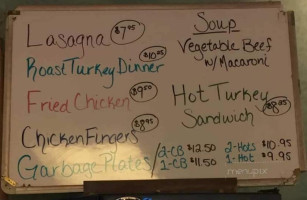 Lasagna $7.95
Roast Turkey Dinner $10.95
Fried Chicken $9.50
Chicken Fingers $8.95
Garbage Plates / 2-CB $12.50 2-Hots $10.95
1-CB $11.50 1-Hot $9.95
Soup
Vegetable Beef
w/Macaroni
Hot Turkey
Sandwich $8.95